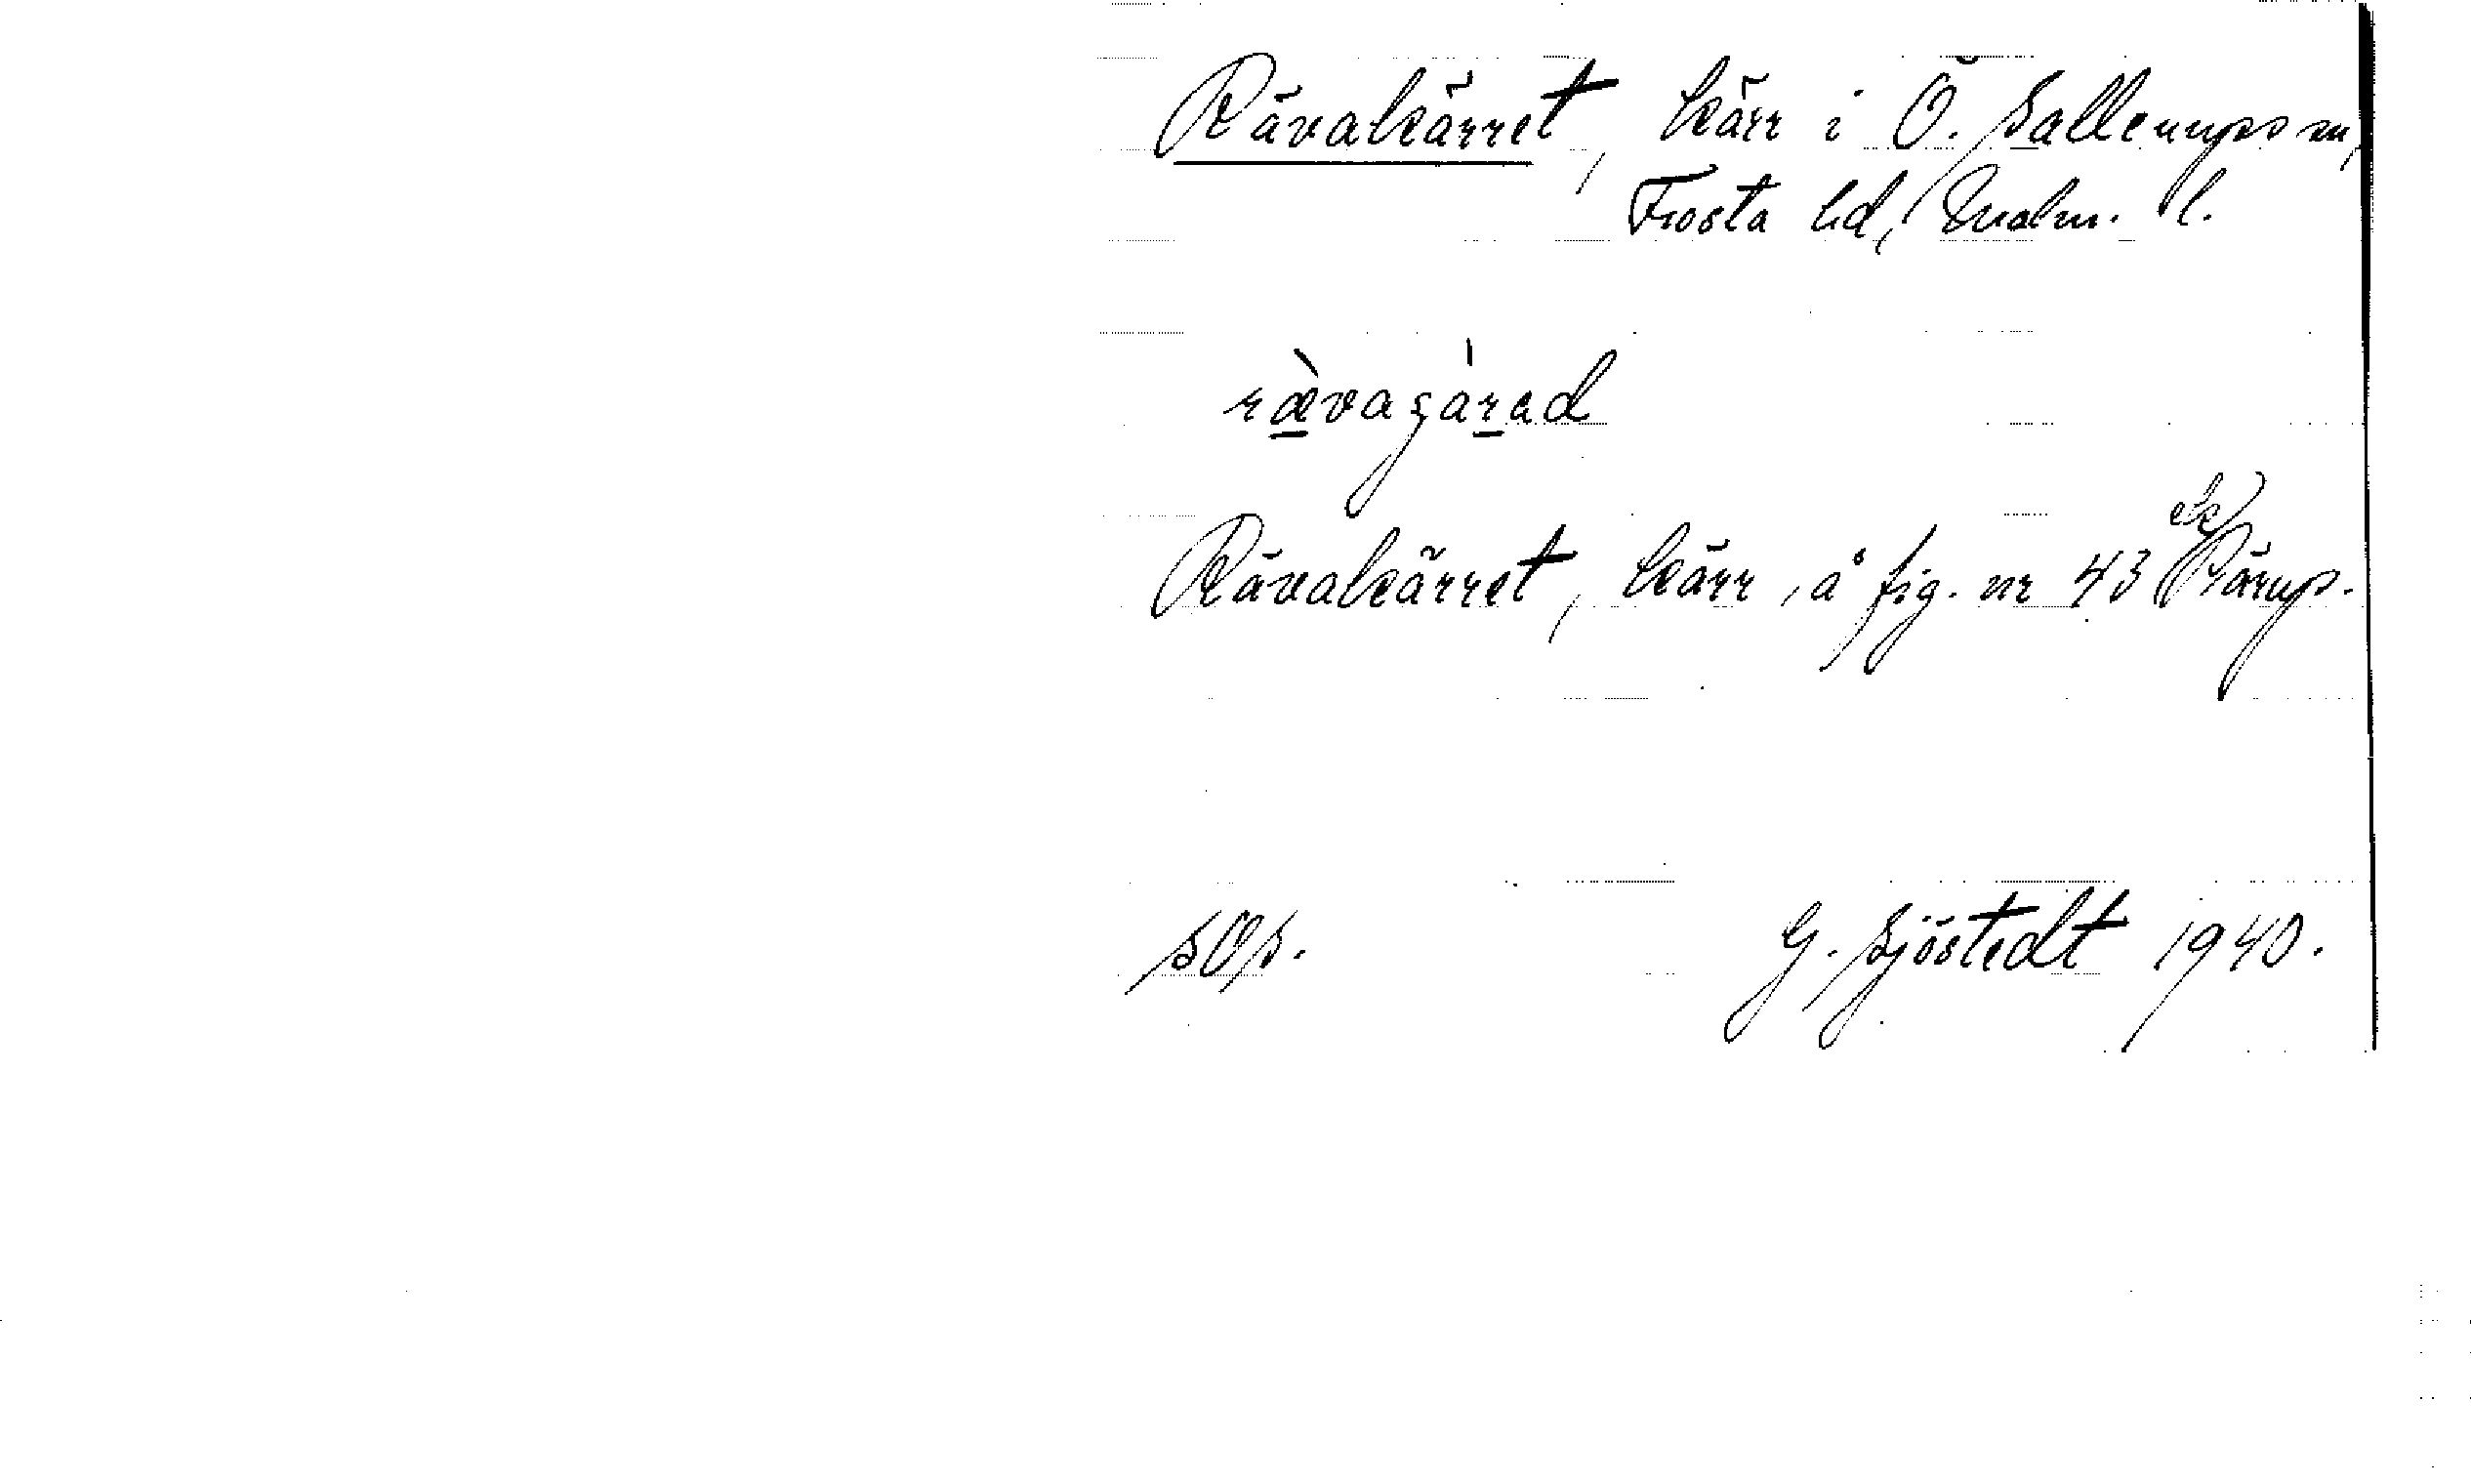 Rävakärret, kärr i Ö. Sallerups sn,
Frosta hd, Malm. l.
rævaçärad
Rävakärret, kärr, å fig. nr 43
ek
Pärup.
SOs.
G. Sjöstedt 1940.